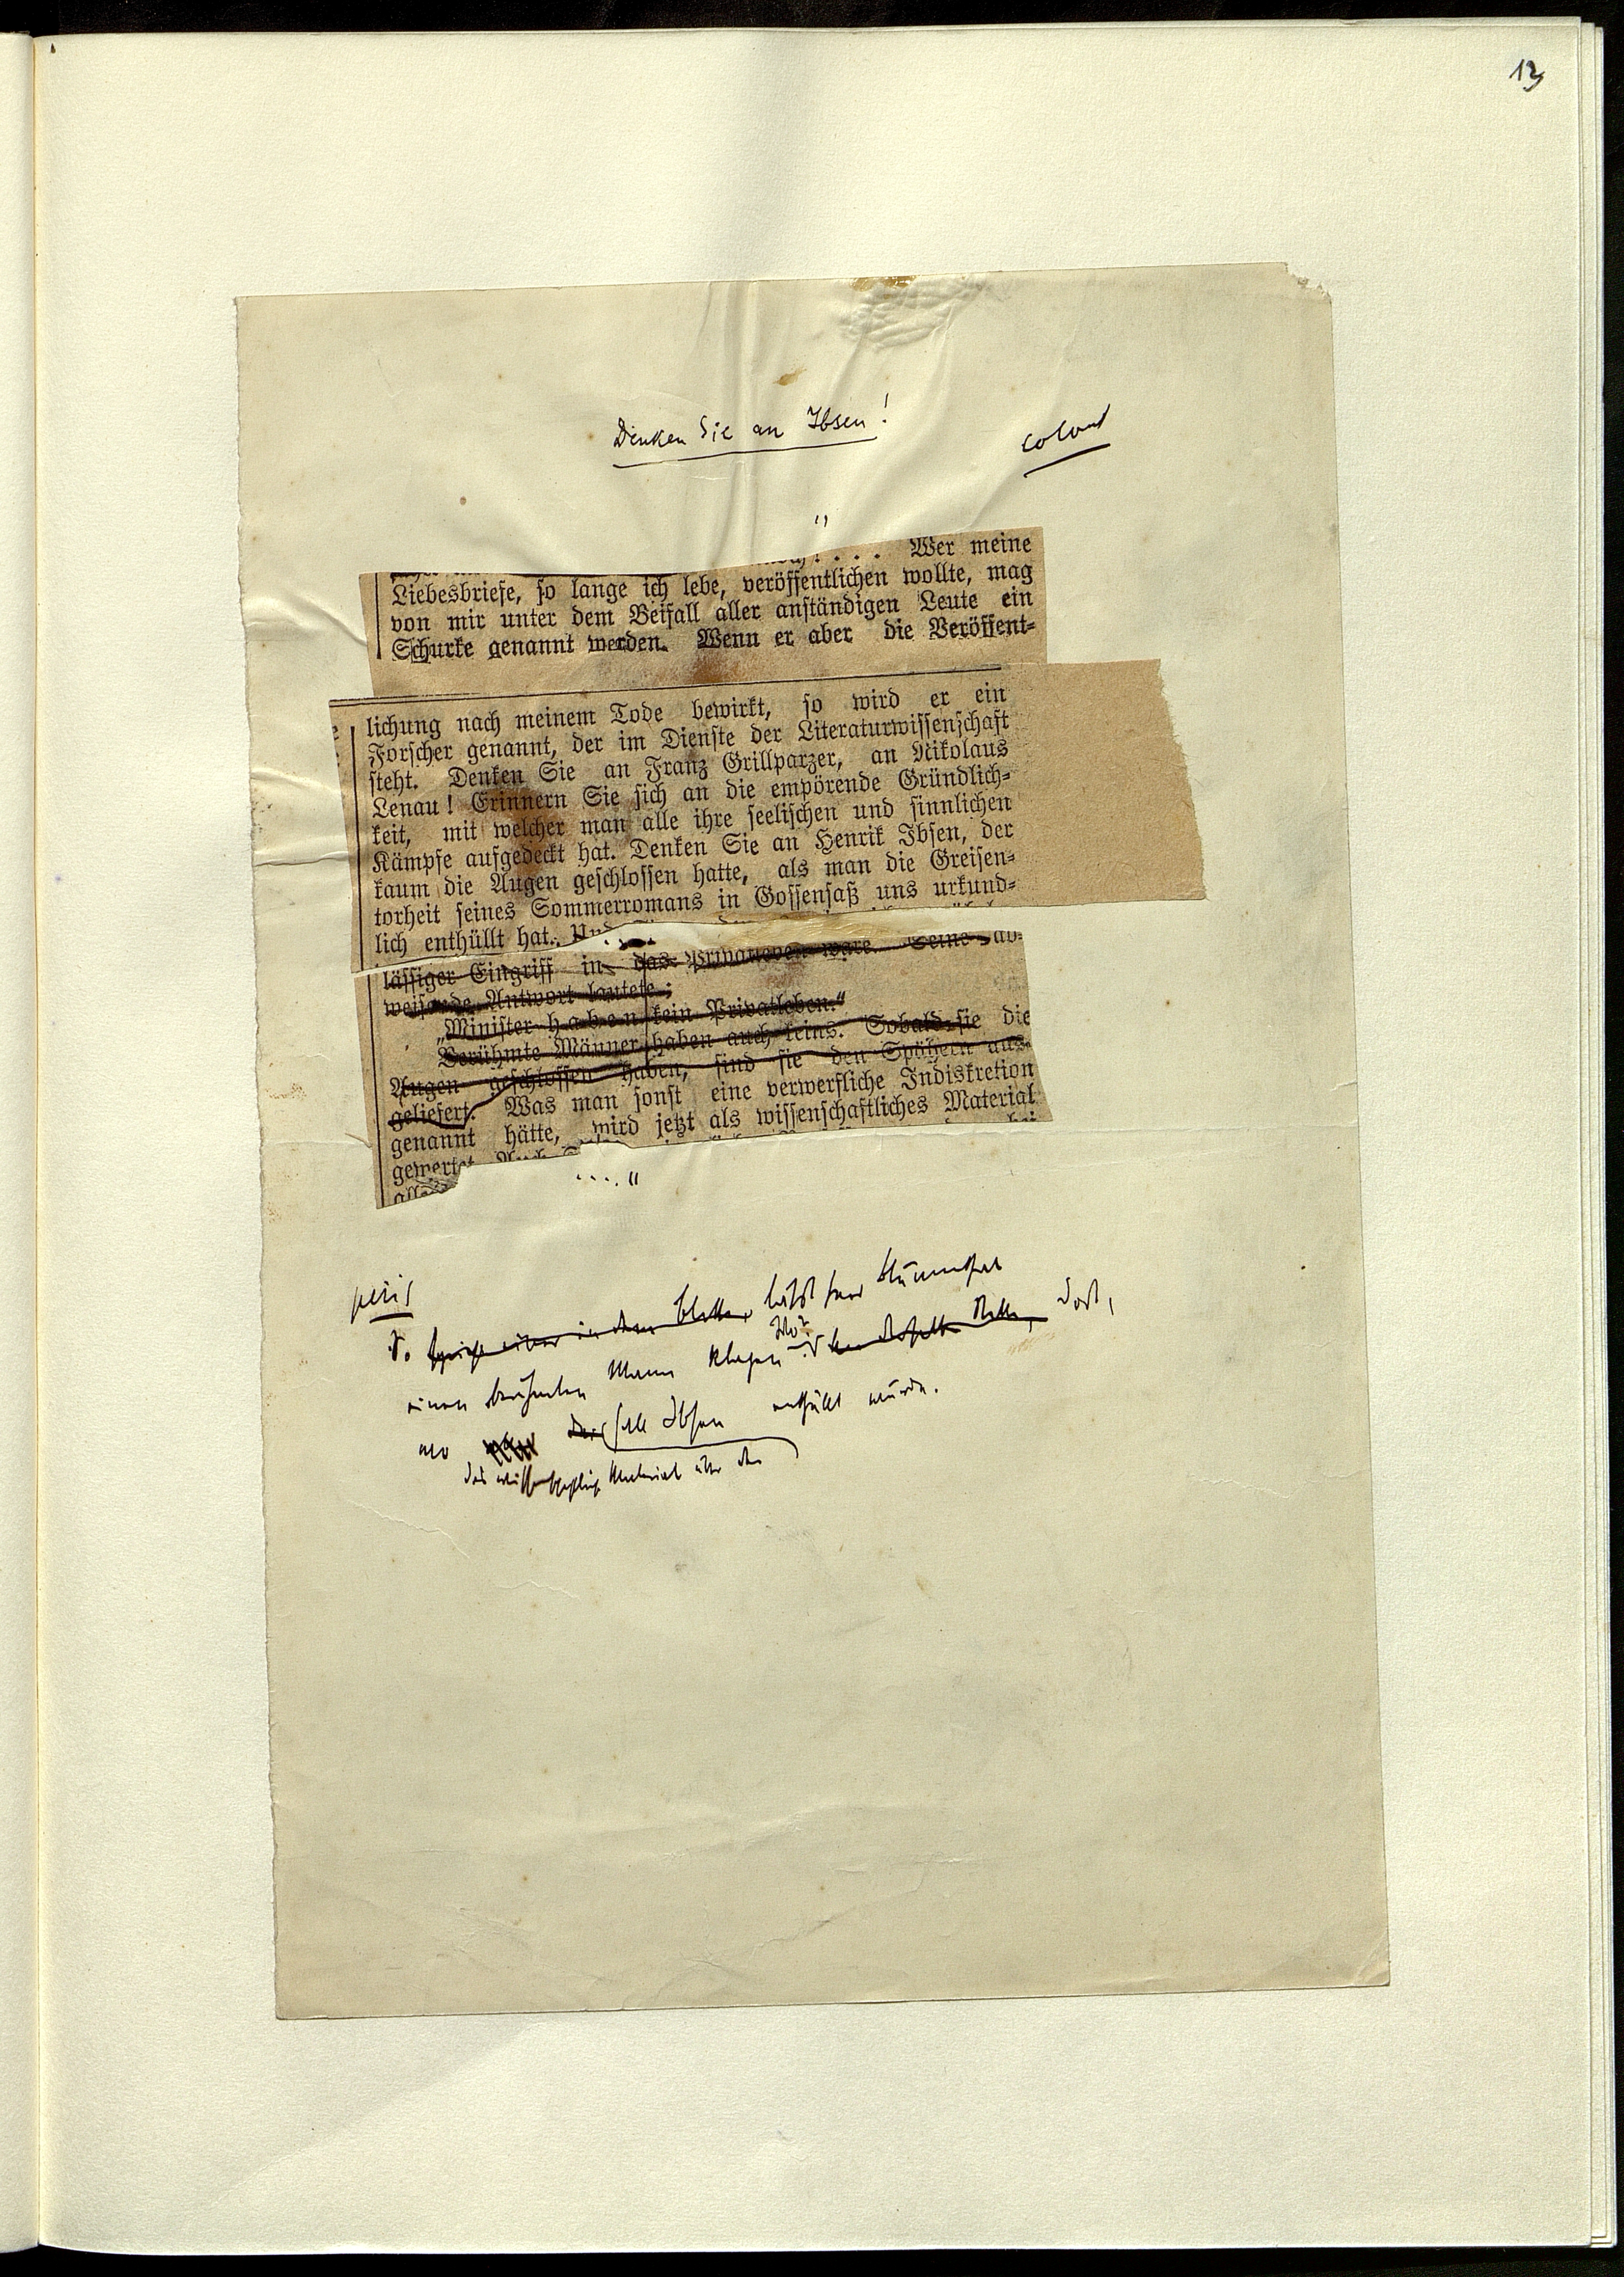 13
Denken Sie an Ibsen!
"
Wer meine
Liebesbriefe, so lange ich lebe, veröffentlichen wollte, mag
von mir unter dem Beifall aller anständigen Leute ein
Schurke genannt werden. Wenn er aber die Veröffent-
lichung nach meinem Tode bewirkt, so wird er ein
Forscher genannt, der im Dienste der Literaturwissenschaft
steht. Denken Sie an Franz Grillparzer, an Nikolaus
Lenau! Erinnern Sie sich an die empörende Gründlich-
keit, mit welcher man alle ihre seelischen und sinnlichen
Kämpfe aufgedeckt hat. Denken Sie an Henrik Ibsen, der
kaum die Augen geschlossen hatte, als man die Greisen-
torheit seines Sommerromans in Gossensaß uns urkund-
lich enthüllt hat.
lässiger Eingriff in das Privatleben wäre. Seine ab-
weisende Antwort lautete:
„Minister haben kein Privatleben."
Berühmte Männer haben auch keins. Sobald sie die
Augen geschlossen haben, sind sie den Spähern aus-
geliefert. Was man sonst eine verwerfliche Indiskretion
genannt hätte, wird jetzt als wissenschaftliches Material
gewertet
...."
So läßt Herr Blumenthal
einen berühmten Mann klagen. Wo? Dort,
wo Fall Ibsen enthüllt wurde.
das wissenschaftliche Material über den